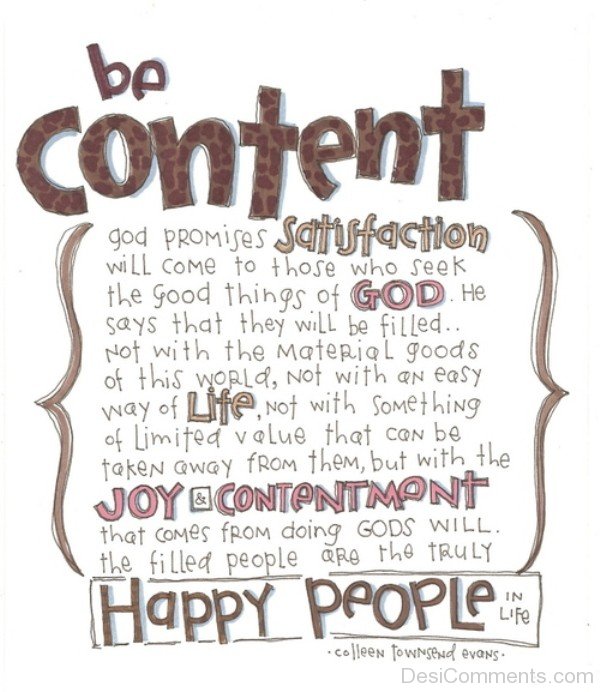 be
content
god PROMISES Satisfaction
will COME to those who seek
the good things of GOD. He
says that they will be filled..
Not with the MateRiaL goods
of this WORLD, Not with an easy
way of Life, Not with SoMething
of Limited value that can be
taken away FROM them, but with the
JOY & CONTENTMENT
that comes FROM doing GODS WILL.
the filled people are the tRULY
Happy PeOPLE IN LiFe
·colleen townsend evans·
DesiComments.com